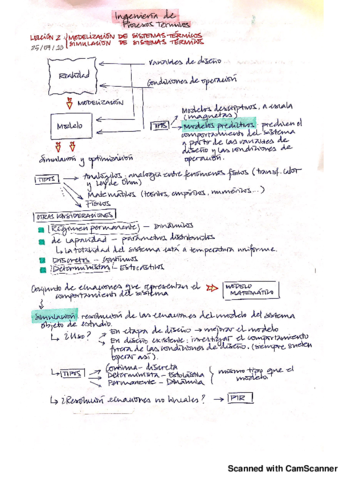 Ingeniería de
Procesos Térmicos
LECCIÓN 2 / MODELIZACIÓN DE SISTEMAS TÉRMICOS
SIMULACIÓN DE SISTEMAS TÉRMICOS
25/09/20
Variables de diseño
Realidad
Condiciones de operación
MODELIZACIÓN
Modelos descriptivos, a escala
(maquetas)
Modelo
TIPOS
Modelos predictivos predicen el
comportamiento del sistema
a partir de las variables de
diseño y las condiciones de
operación.
Simulación y optimización
TIPOS
Analógicos, analogía entre fenómenos físicos (transf. calor
y Ley de Ohm)
Matemáticos (teóricos, empíricos, numéricos...)
Físicos
OTRAS CONSIDERACIONES
Régimen permanente - Dinámicos
de capacidad - parámetros distribuidos
La totalidad del sistema está a temperatura uniforme.
Discretos - Continuos
Deterministas - Estocásticos
Conjunto de ecuaciones que representan el
comportamiento del sistema
MODELO
MATEMÁTICO
Simulación: resolución de las ecuaciones del modelo del sistema
objeto de estudio.
¿Uso?
En etapa de diseño → mejorar el modelo
En diseño existente: investigar el comportamiento
fuera de las condiciones de diseño. (siempre suelen
operar así).
TIPOS
Continua - discreta
Determinista - Estocástica
Permanente - Dinámica
mismo tipo que el
modelo
¿Resolución ecuaciones no lineales?